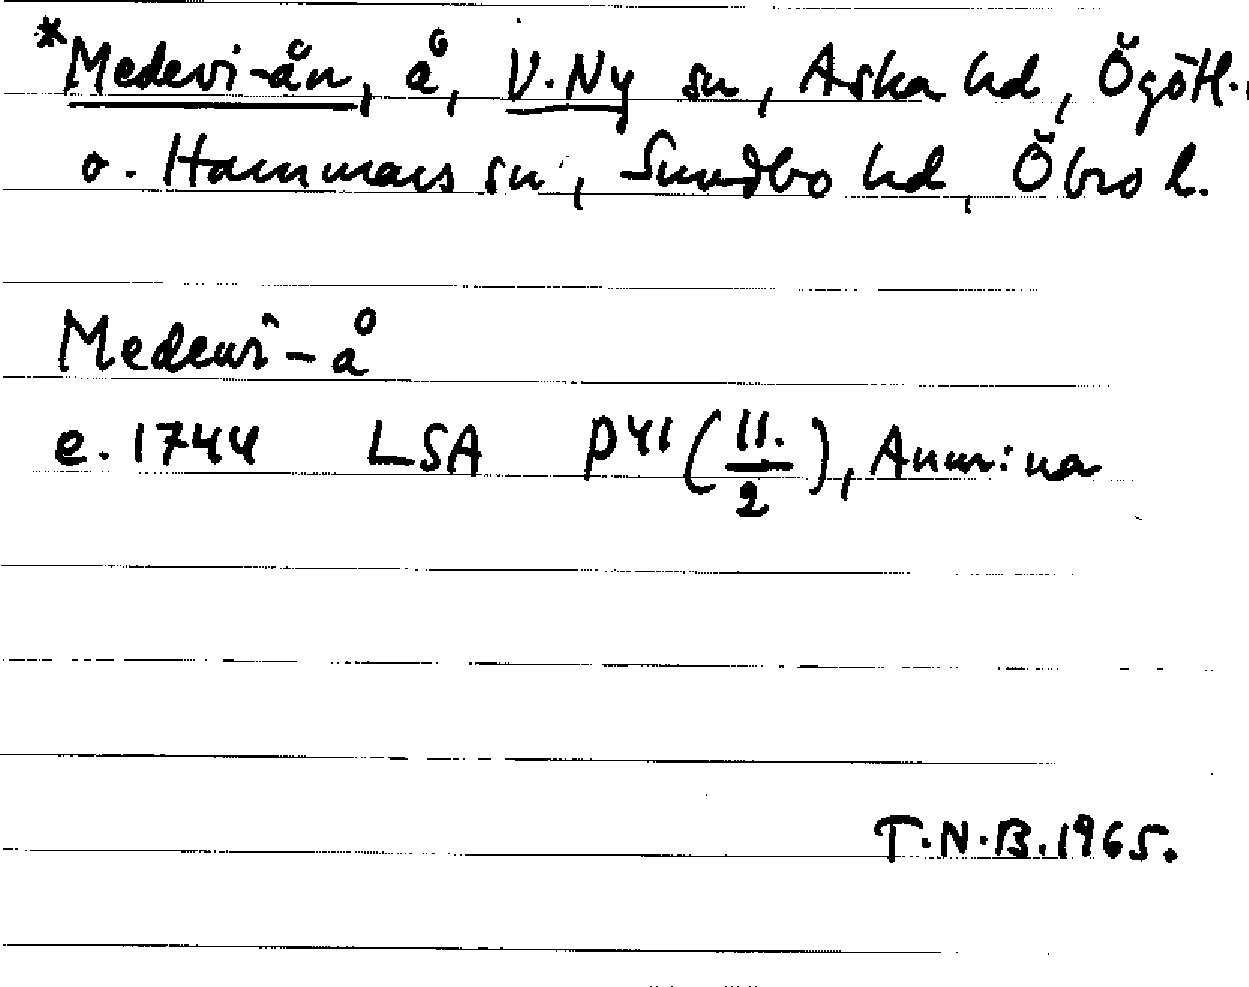 *Medevi-ån, å, V. Ny sn, Aska hd, Ögötl.,
o. Hammars sn, Sundbo hd, Öbro l.
Medewi-å
e. 1744 LSA P41 (11./2), Anm:na
T.N.B. 1965.